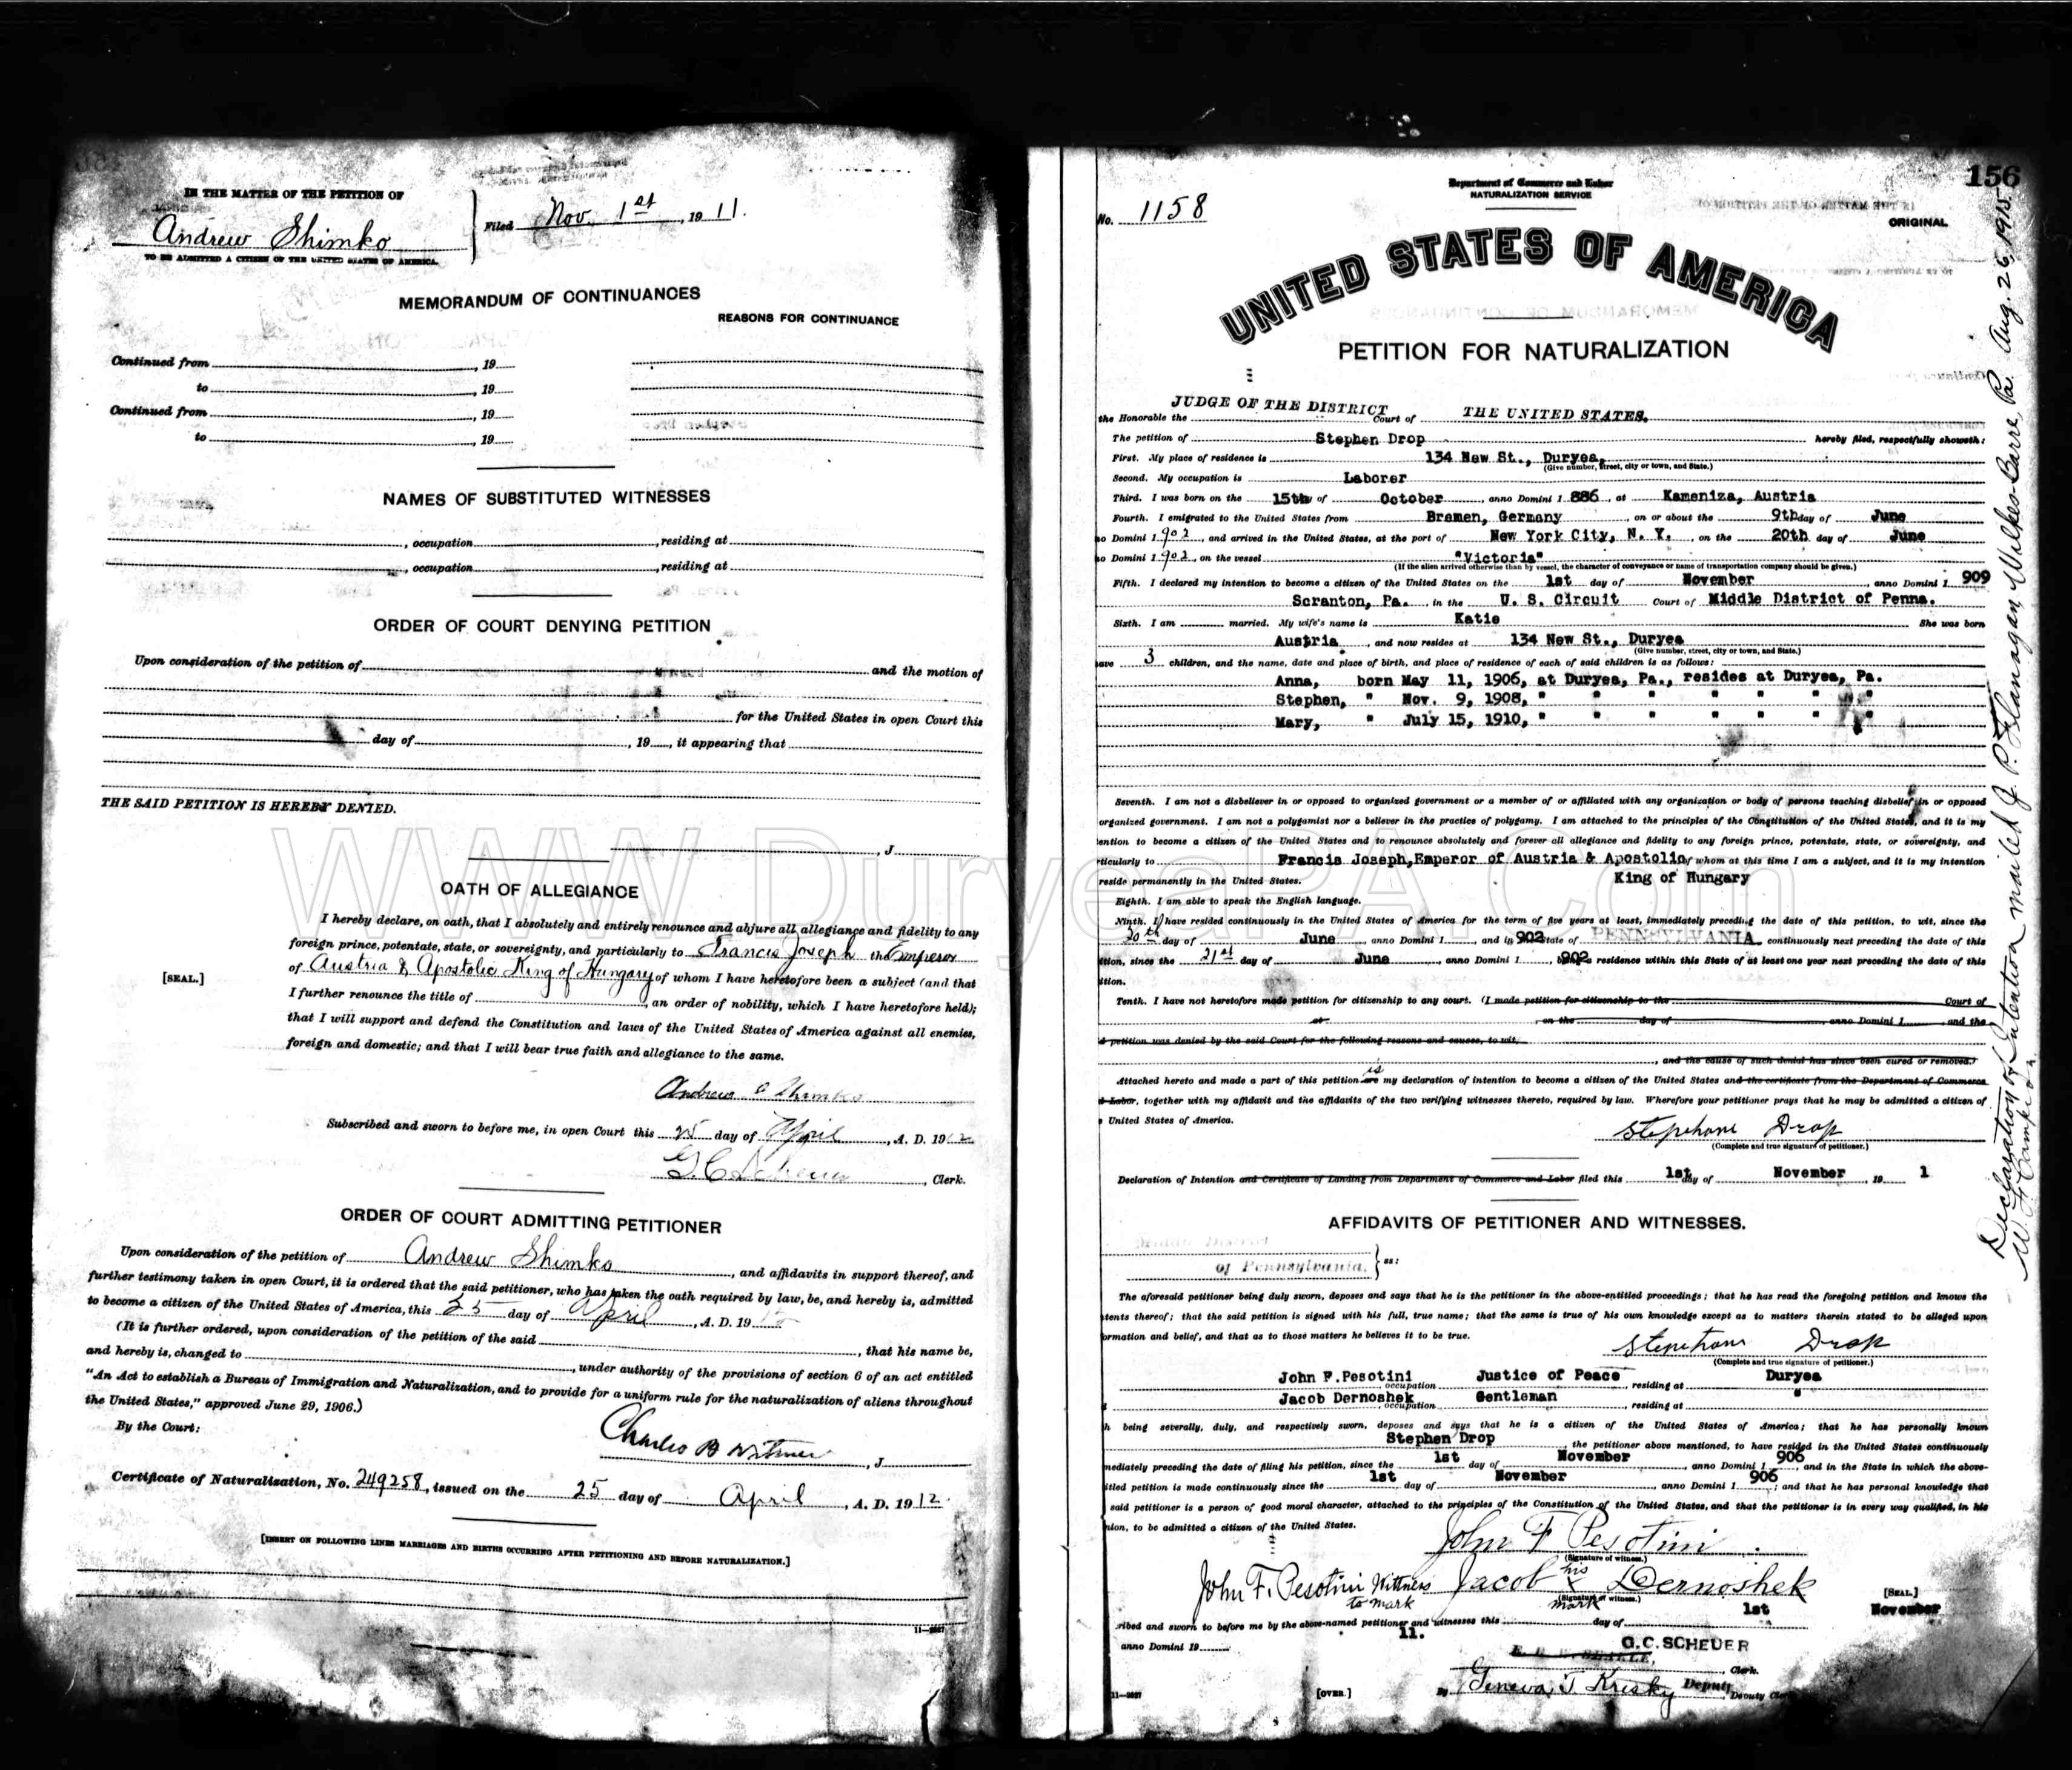 IN THE MATTER OF THE PETITION OF
Andrew Shimko
TO BE ADMITTED A CITIZEN OF THE UNITED STATES OF AMERICA.
Filed Nov. 1st, 1911.
MEMORANDUM OF CONTINUANCES
REASONS FOR CONTINUANCE
Continued from , 19
to , 19
Continued from , 19
to , 19
NAMES OF SUBSTITUTED WITNESSES
, occupation , residing at
, occupation , residing at
ORDER OF COURT DENYING PETITION
Upon consideration of the petition of and the motion of
for the United States in open Court this
day of , 19 , it appearing that
THE SAID PETITION IS HEREBY DENIED.
, J.
OATH OF ALLEGIANCE
I hereby declare, on oath, that I absolutely and entirely renounce and abjure all allegiance and fidelity to any
foreign prince, potentate, state, or sovereignty, and particularly to Francis Joseph the Emperor
[SEAL.]
of Austria & Apostolic King of Hungary of whom I have heretofore been a subject (and that
I further renounce the title of , an order of nobility, which I have heretofore held);
that I will support and defend the Constitution and laws of the United States of America against all enemies,
foreign and domestic; and that I will bear true faith and allegiance to the same.
Andrew Shimko
Subscribed and sworn to before me, in open Court this 25 day of April, A. D. 1912
G. C. Scheuer, Clerk.
ORDER OF COURT ADMITTING PETITIONER
Upon consideration of the petition of Andrew Shimko, and affidavits in support thereof, and
further testimony taken in open Court, it is ordered that the said petitioner, who has taken the oath required by law, be, and hereby is, admitted
to become a citizen of the United States of America, this 25 day of April, A. D. 19
(It is further ordered, upon consideration of the petition of the said , that his name be,
and hereby is, changed to , under authority of the provisions of section 6 of an act entitled
"An Act to establish a Bureau of Immigration and Naturalization, and to provide for a uniform rule for the naturalization of aliens throughout
the United States," approved June 29, 1906.)
By the Court:
Charles B Witmer, J.
Certificate of Naturalization, No. 249258, issued on the 25 day of April, A. D. 1912.
[INSERT ON FOLLOWING LINES MARRIAGES AND BIRTHS OCCURRING AFTER PETITIONING AND BEFORE NATURALIZATION.]
156
Department of Commerce and Labor
NATURALIZATION SERVICE
No. 1158
ORIGINAL
UNITED STATES OF AMERICA
PETITION FOR NATURALIZATION
the Honorable the JUDGE OF THE DISTRICT Court of THE UNITED STATES.
The petition of Stephen Drop hereby filed, respectfully showeth:
First. My place of residence is 134 New St., Duryea,
(Give number, street, city or town, and State.)
Second. My occupation is Laborer
Third. I was born on the 15th of October, anno Domini 1886, at Kameniza, Austria
Fourth. I emigrated to the United States from Bremen, Germany, on or about the 9th day of June
Domini 1902, and arrived in the United States, at the port of New York City, N. Y., on the 20th day of June
Domini 1902, on the vessel "Victoria"
(If the alien arrived otherwise than by vessel, the character of conveyance or name of transportation company should be given.)
Fifth. I declared my intention to become a citizen of the United States on the 1st day of November, anno Domini 1909
Scranton, Pa. in the U. S. Circuit Court of Middle District of Penna.
Sixth. I am married. My wife's name is Katie She was born
Austria, and now resides at 134 New St., Duryea
(Give number, street, city or town, and State.)
3 children, and the name, date and place of birth, and place of residence of each of said children is as follows:
Anna, born May 11, 1906, at Duryea, Pa., resides at Duryea, Pa.
Stephen, " Nov. 9, 1908, " " " " " " "
Mary, " July 15, 1910, " " " " " " "
Seventh. I am not a disbeliever in or opposed to organized government or a member of or affiliated with any organization or body of persons teaching disbelief in or opposed
organized government. I am not a polygamist nor a believer in the practice of polygamy. I am attached to the principles of the Constitution of the United States, and it is my
ention to become a citizen of the United States and to renounce absolutely and forever all allegiance and fidelity to any foreign prince, potentate, state, or sovereignty, and
rticularly to Francis Joseph, Emperor of Austria & Apostolic of whom at this time I am a subject, and it is my intention
reside permanently in the United States. King of Hungary
Eighth. I am able to speak the English language.
Ninth. I have resided continuously in the United States of America for the term of five years at least, immediately preceding the date of this petition, to wit, since the
20th day of June, anno Domini 1902, and in State of PENNSYLVANIA, continuously next preceding the date of this
ition, since the 21st day of June, anno Domini 1902, being a residence within this State of at least one year next preceding the date of this
ition.
Tenth. I have not heretofore made petition for citizenship to any court. (I made petition for citizenship to the Court of
at , on the day of , anno Domini 1 , and the
d petition was denied by the said Court for the following reasons and causes, to wit,
, and the cause of such denial has since been cured or removed.)
Attached hereto and made a part of this petition are is my declaration of intention to become a citizen of the United States and the certificate from the Department of Commerce
d Labor, together with my affidavit and the affidavits of the two verifying witnesses thereto, required by law. Wherefore your petitioner prays that he may be admitted a citizen of
United States of America.
Stephane Drop
(Complete and true signature of petitioner.)
Declaration of Intention and Certificate of Landing from Department of Commerce and Labor filed this 1st day of November, 19 1
AFFIDAVITS OF PETITIONER AND WITNESSES.
of Pennsylvania, } ss:
The aforesaid petitioner being duly sworn, deposes and says that he is the petitioner in the above-entitled proceedings; that he has read the foregoing petition and knows the
tents thereof; that the said petition is signed with his full, true name; that the same is true of his own knowledge except as to matters therein stated to be alleged upon
ormation and belief, and that as to those matters he believes it to be true.
Stephane Drop
(Complete and true signature of petitioner.)
John F. Pesotini occupation Justice of Peace, residing at Duryea
Jacob Dernoshek, occupation Gentleman, residing at "
h being severally, duly, and respectively sworn, deposes and says that he is a citizen of the United States of America; that he has personally known
Stephen Drop, the petitioner above mentioned, to have resided in the United States continuously
mediately preceding the date of filing his petition, since the 1st day of November, anno Domini 1906, and in the State in which the above-
titled petition is made continuously since the 1st day of November, anno Domini 1906; and that he has personal knowledge that
said petitioner is a person of good moral character, attached to the principles of the Constitution of the United States, and that the petitioner is in every way qualified, in his
nion, to be admitted a citizen of the United States.
John F Pesotini
(Signature of witness.)
John F. Pesotini Wittness to mark
Jacob his x mark Dernoshek
(Signature of witness.)
[SEAL.]
ribed and sworn to before me by the above-named petitioner and witnesses this 1st day of November
anno Domini 19 11.
G. C. SCHEUER
, Clerk.
By Geneva T. Krisky Deputy Deputy Clerk
11—2627
[OVER.]
Declaration of Intention mailed J. P. Flanagan, Wilkes-Barre, Pa. Aug. 26, 1915
WWW.DuryeaPA.Com